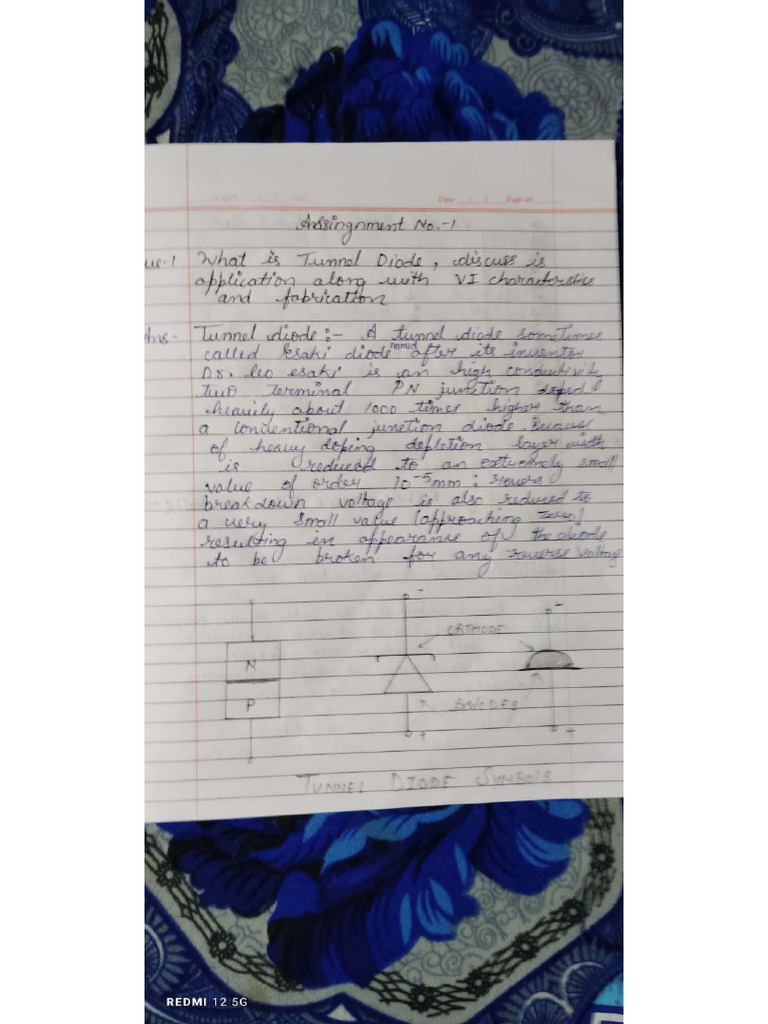 Date / / Page no
Assingnment No.-1
ue-1 What is Tunnel Diode, discuss is
application along with VI characterstics
and fabrication
Ans- Tunnel diode :- A tunnel diode sometimes
called Esaki diode named after its inventor
Dr. leo esaki is an high conductivity
two terminal PN junction doped
heavily about 1000 times higher than
a conventional junction diode. Because
of heavy doping depletion layer width
is reduced to an extremely small
value of order 10⁻⁵mm : revers
breakdown voltage is also reduced to
a very small value (approaching zero)
resulting in appearance of the diode
to be broken for any reverse voltage
-
-
CATHODE
N
P
ANODES
+
+
TUNNEL DIODE SYMBOLS
REDMI 12 5G